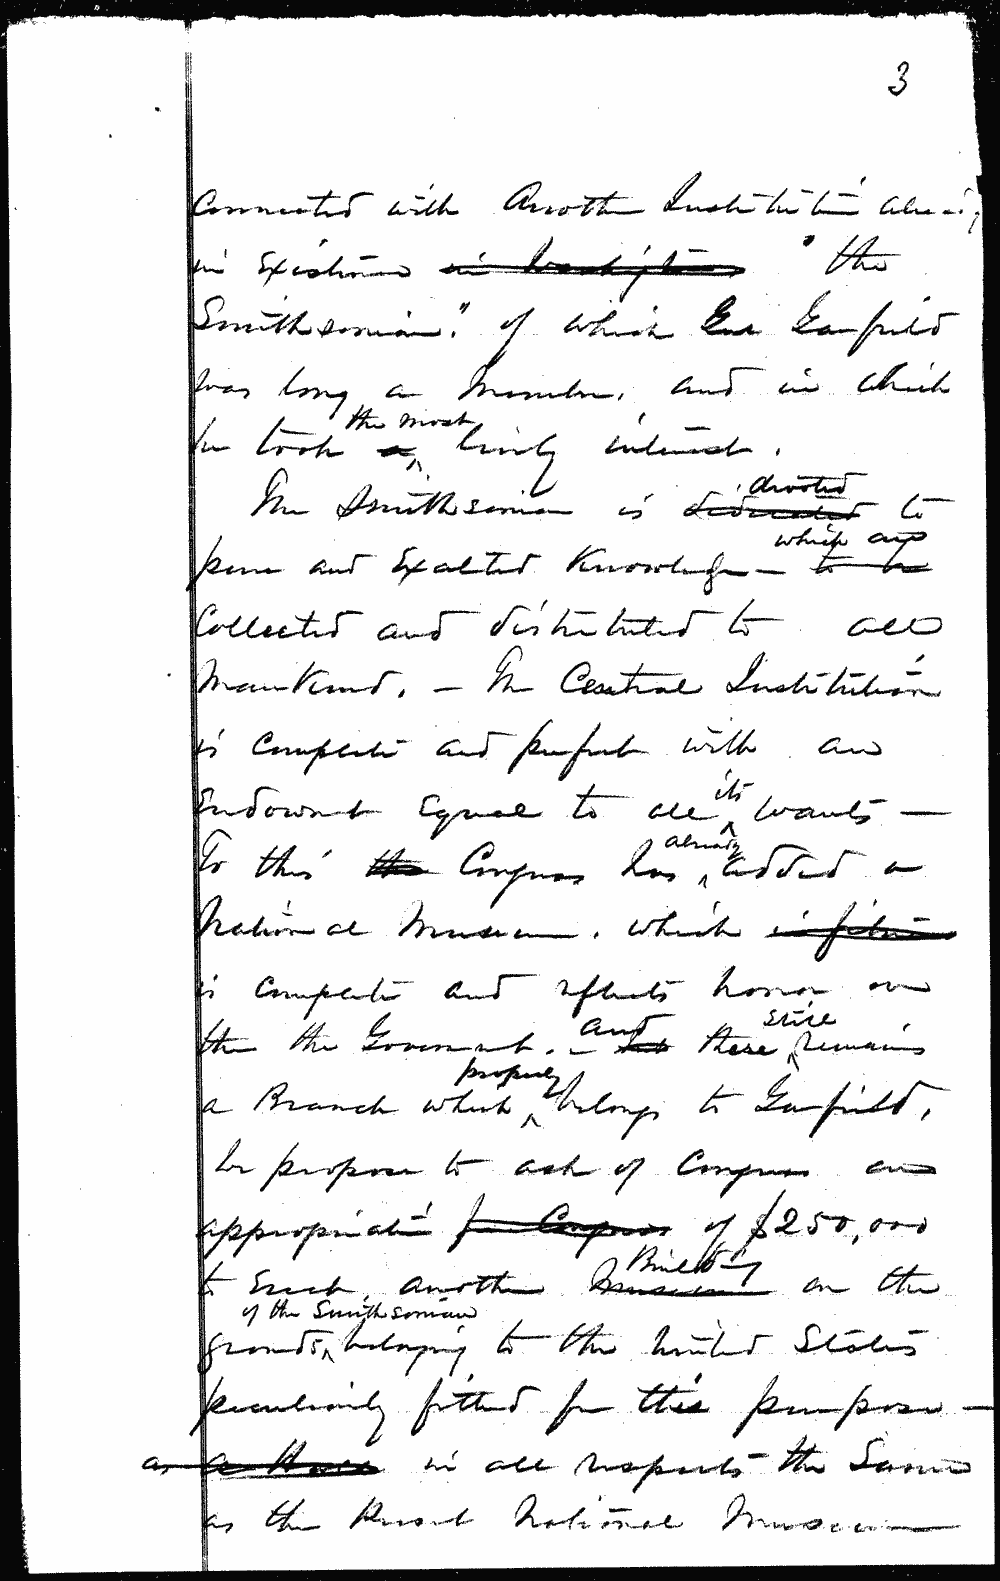 3
Connected with Another Institution already
in Existence in Washington, "the
Smithsonian." of which Gen Garfield
was long a Member, and in which
the most
he took a lively interest.
devoted
The Smithsonian is dedicated to
which are
pure and Exalted Knowledge – to be
Collected and distributed to all
Mankind. – The Central Institution
is complete and perfect with an
its
Endowment Equal to all wants –
already
To this the Congress has added a
National Museum, which is fitting
is complete and reflects honor on
and still
the the Government. – but there remains
properly
a Branch which belongs to Garfield,
we propose to ask of Congress an
appropriation for Congress of $250,000
Building
to Erect another Museum on the
of the Smithsonian
grounds, belonging to the United States
peculiarly fitted for this purpose –
as a Hall in all respects the Same
as the Present National Museum